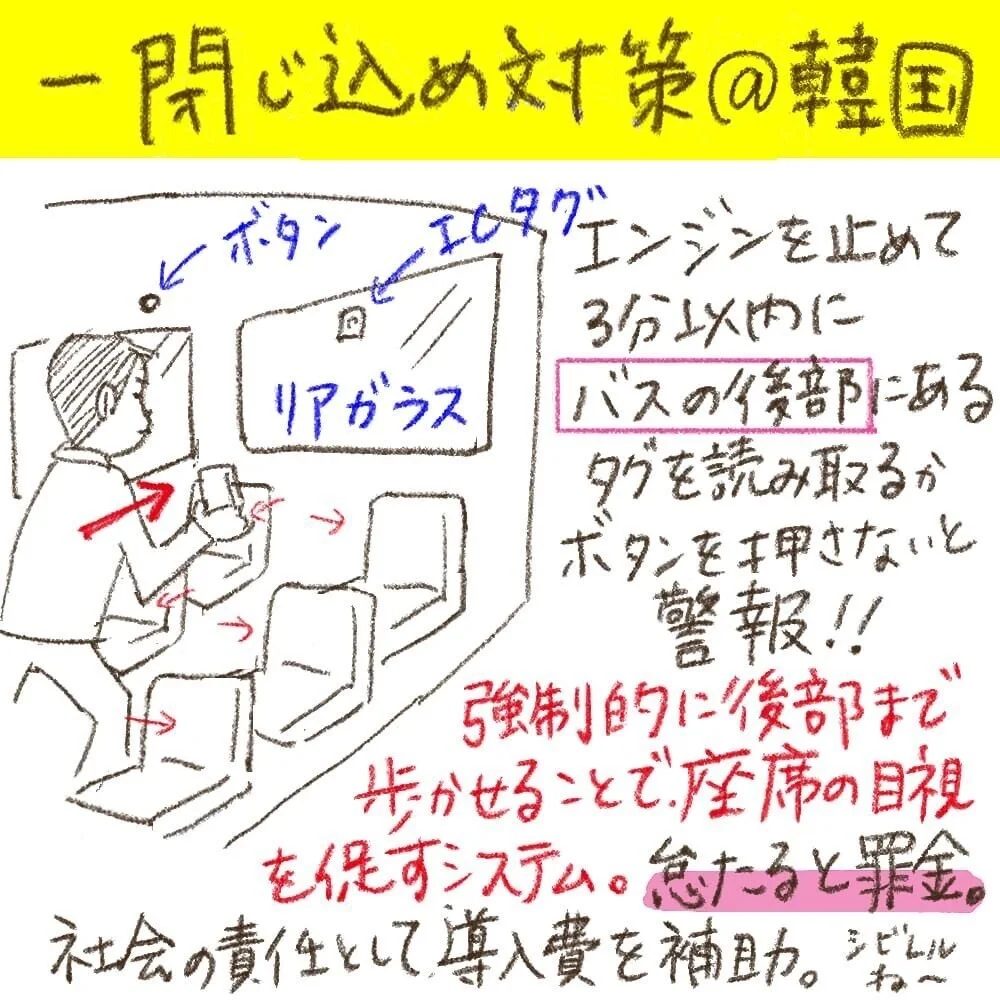 ー閉じ込め対策@韓国
ボタン
ICタグ
リアガラス
エンジンを止めて
3分以内に
バスの後部にある
タグを読み取るか
ボタンを押さないと
警報!!
強制的に後部まで
歩かせることで座席の目視
を促すシステム。怠たると罪金。
社会の責任として導入費を補助。
シビレル
ね〜